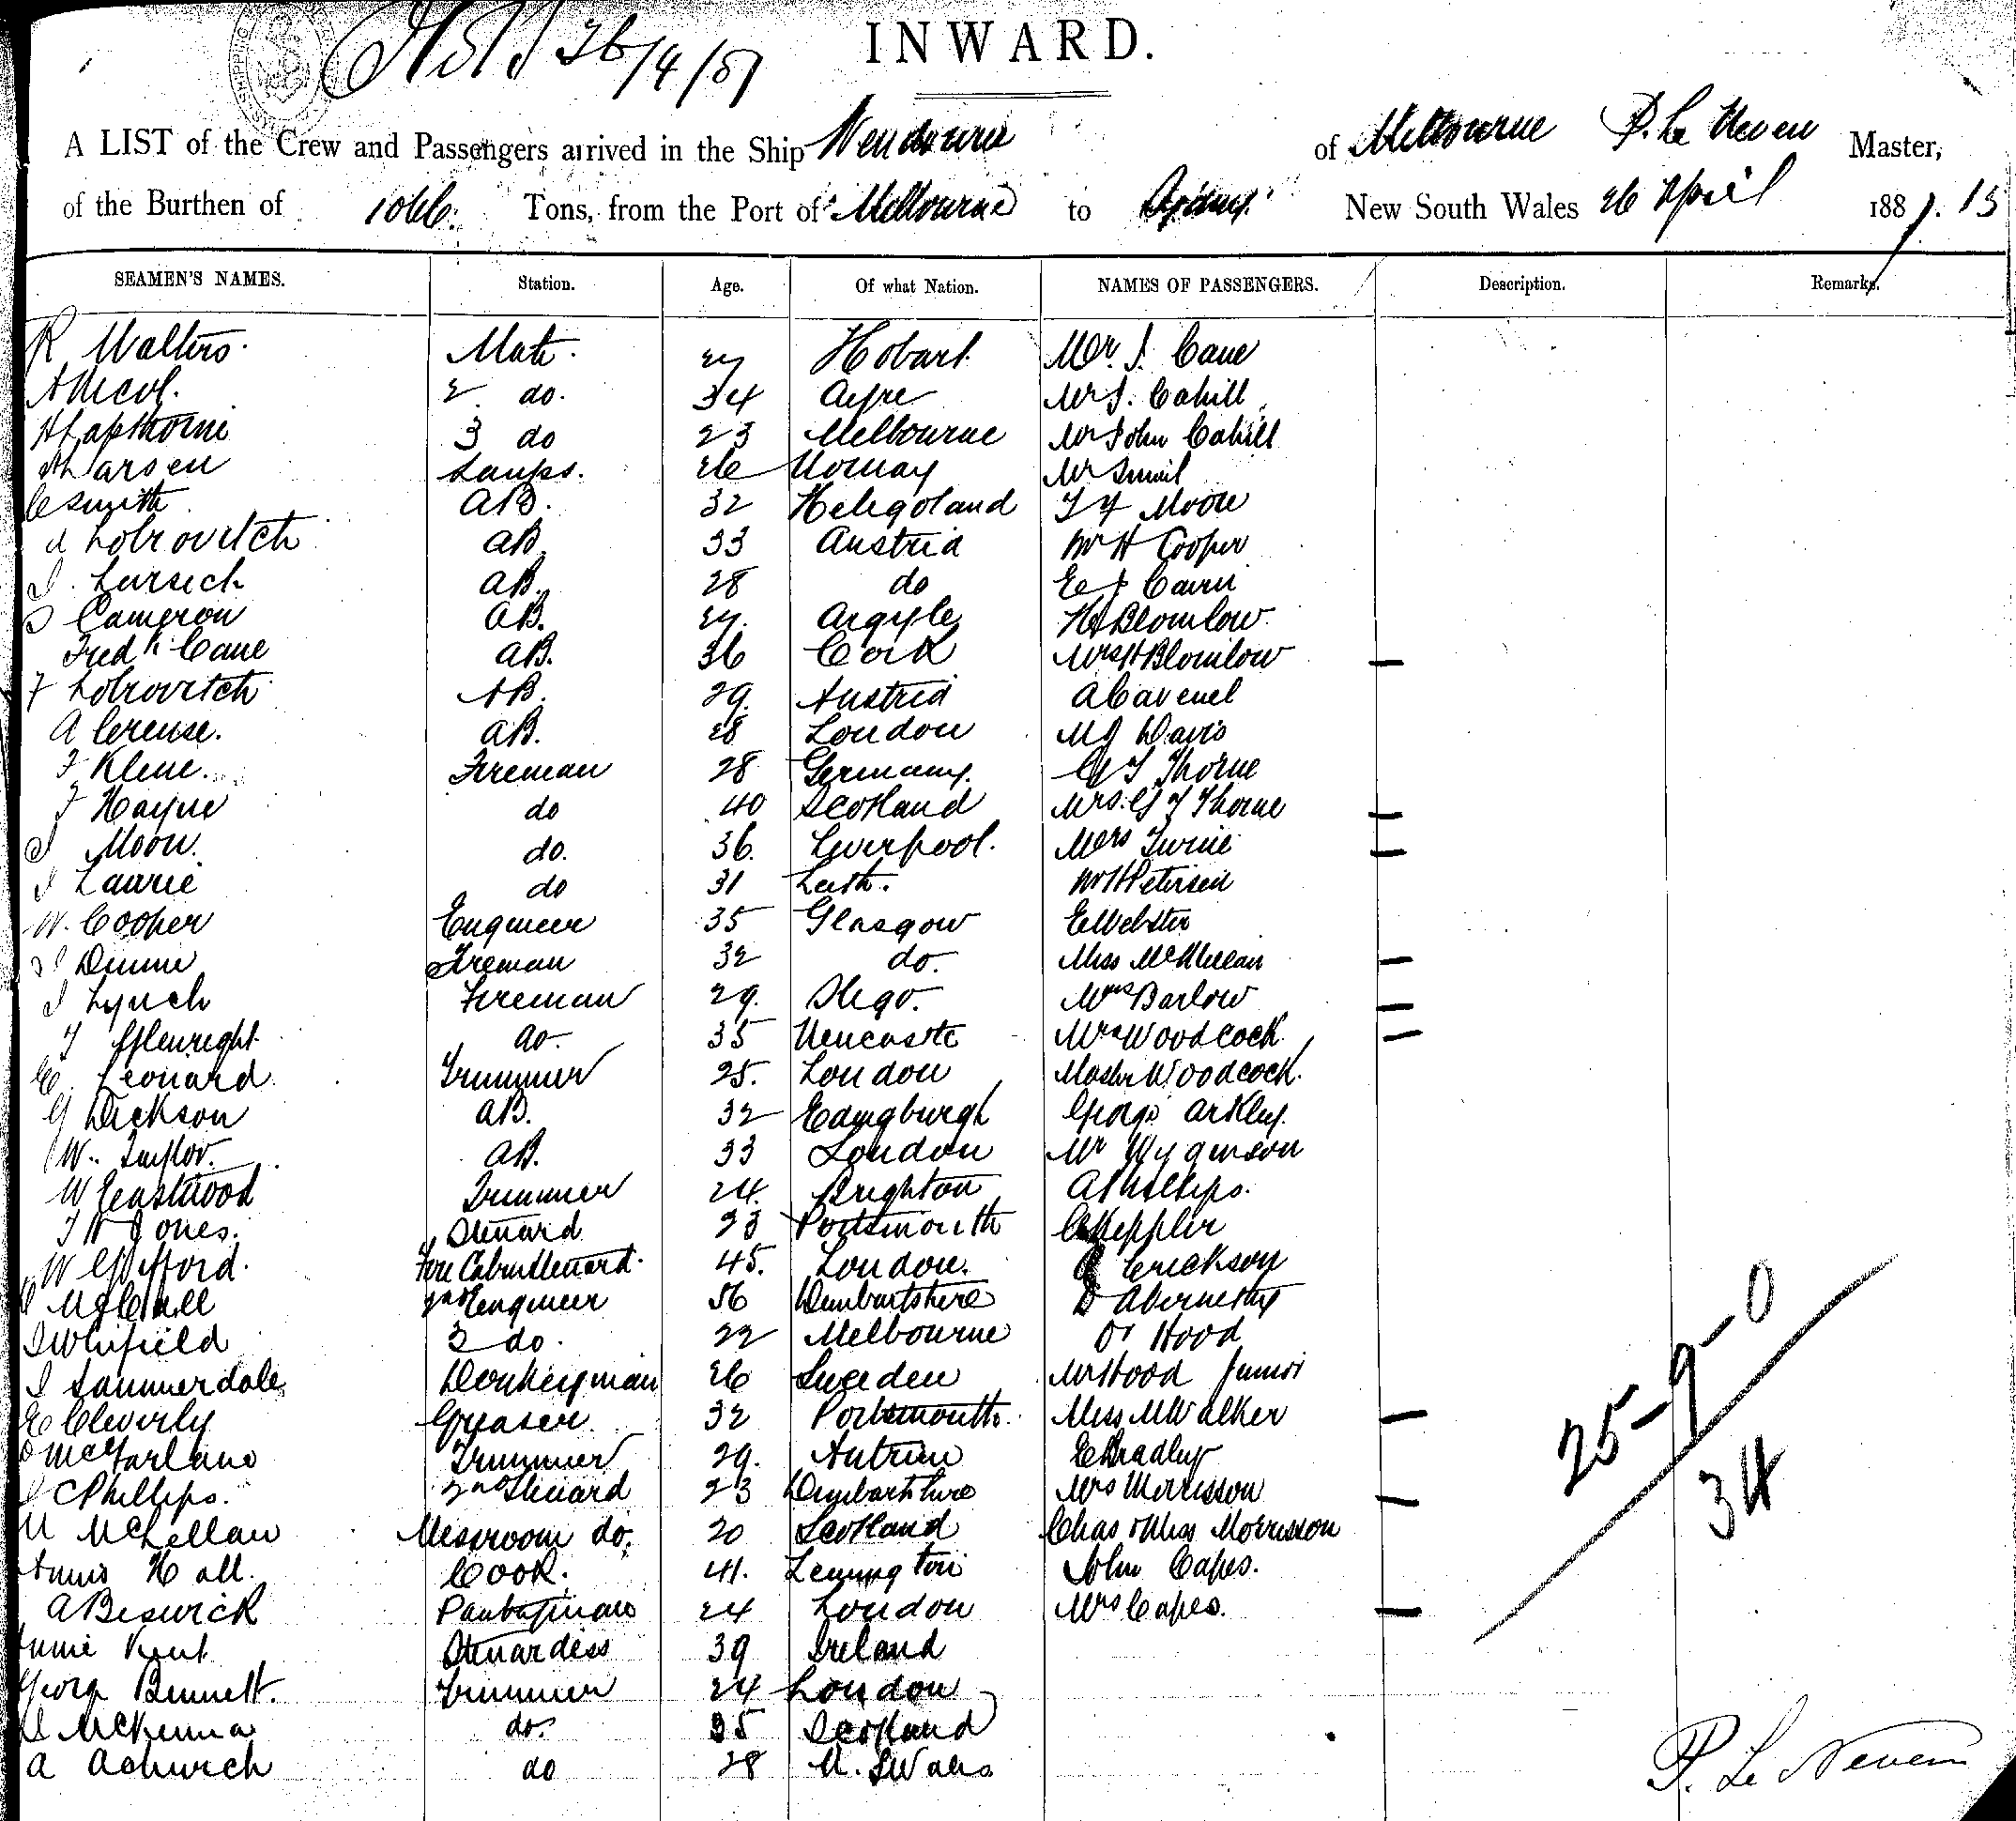 INWARD.
A LIST of the Crew and Passengers arrived in the Ship Wendouree of Melbourne P. Le Neven Master,
of the Burthen of 1066. Tons, from the Port of Melbourne to Sydney New South Wales 26 April 1887. 13
SEAMEN'S NAMES. Station. Age. Of what Nation. NAMES OF PASSENGERS. Description. Remarks.
R Walters. Mate. 27 Hobart. Mr. J. Cane
A Nicol. 2 do. 34 Ayre Mr J. Cahill
H Lapthorne 3 do 23 Melbourne Mr John Cahill
A Larsen Lamps. 26 Norway Mr
C Smith AB. 32 Heligoland Moore
A Lobrovitch AB. 33 Austria Mr H Cooper
J. Lursich AB. 28 do
D Cameron AB. 27. Argyle H Blomlow
Fredk Cane AB. 36 Cork Mrs H Blomlow
F Lobrovitch AB. 29. Austria A Cavenel
A Cerense. AB. 28 London M J Davis
F Klene. Fireman 28 Germany. G F Thorne
F Hayne do 40 Scotland Mrs. G F Thorne
J Moon. do. 36. Liverpool. Mrs Twine
J Lawrie do 31 Leith. Mr H Petersen
W. Cooper Engineer 35 Glasgow E Webster
Dunne Fireman 32 do. Miss McMillan
J Lynch Fireman 29. Sligo. Mrs Barlow
T Glenwright do. 35 Newcastle Mrs Woodcock
C. Leonard Trimmer 25. London Master Woodcock.
G Dickson AB. 32 Edingburgh George Arkley.
W. Taylor. AB. 33 London Mr
W Eastwood Trimmer 24. Brighton A Phillips.
T H Jones. Steward 23 Portsmouth C Keppler
W Gifford. Fore Cabin Steward. 45. London. Erickson
McCall 2nd Engineer 56 Dumbartshire D Abernethy
J Whifield 3 do. 22 Melbourne Dr Hood
J Sannerdale Donkeyman 26 Sweden Mr Hood Junior
E Cleverly Greaser 32 Portsmouth. Miss M Walker
D McFarlane Trimmer 29. Antrim E Bradley
J C Phillips. 2nd Steward 23 Dumbartshire Mrs Morrisson
N McLellan Messroom do. 20 Scotland Chas & Miss Morrisson
Hall. Cook. 41. Lemington John Capes.
A Beswick Pantryman 24 London Mrs Capes.
Annie Kent Stewardess 39 Ireland
George Bennett. Trimmer 24 London
J McKenna do. 35 Scotland
A Achurch do 28 N. S Wales
25-9-0
34
P. Le Neven